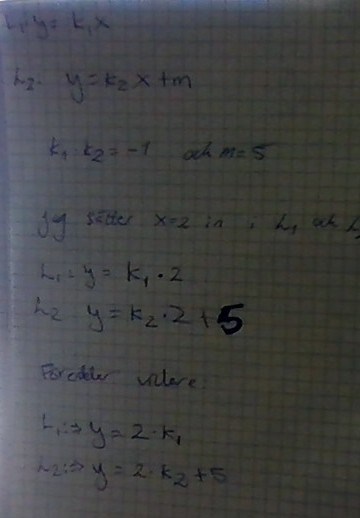 L₁: y = k₁x
L₂: y = k₂x + m
k₁ · k₂ = -1 och m = 5
jag sätter x=2 in i L₁ och L
L₁: y = k₁ · 2
L₂ y = k₂ · 2 + 5
L₁: => y = 2 · k₁
L₂: => y = 2 · k₂ + 5